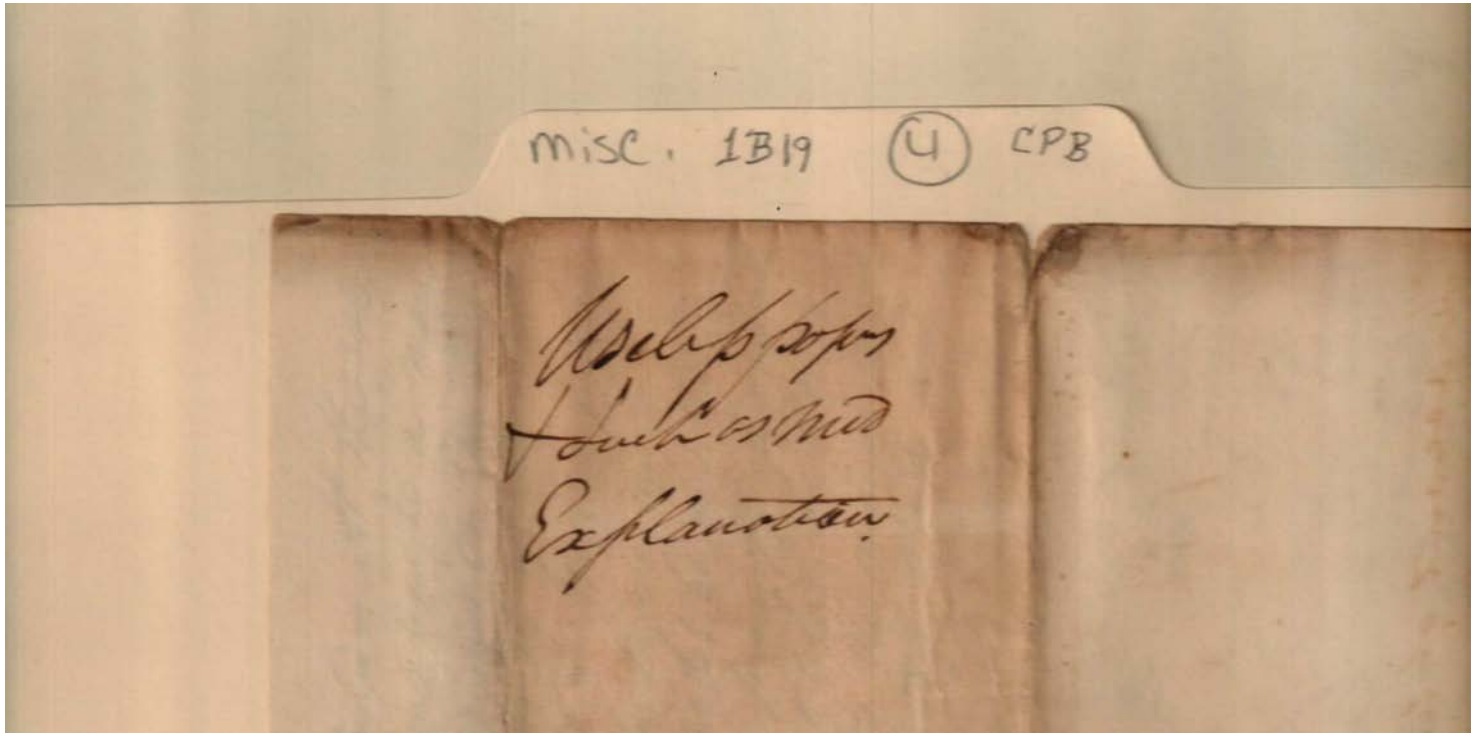 misc. 1B19 4 CPB
Useless papers
& such as need
Explanation.